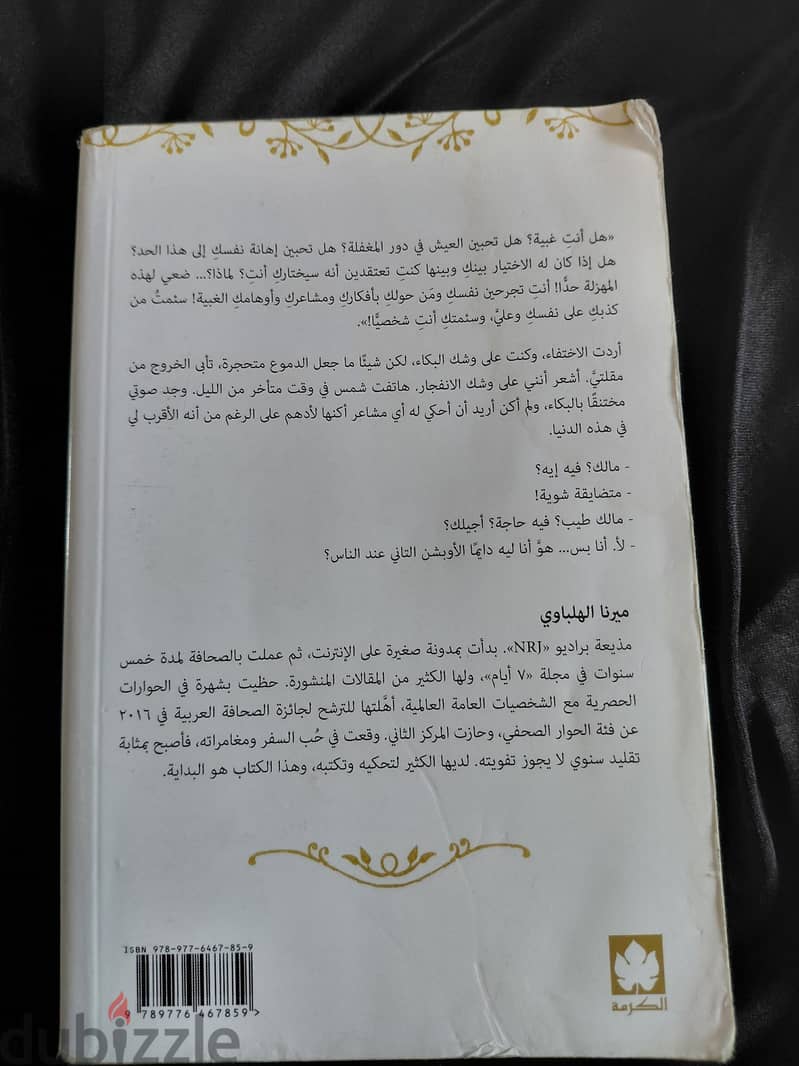 «هل أنتِ غبية؟ هل تحبين العيش في دور المغفلة؟ هل تحبين إهانة نفسكِ إلى هذا الحد؟
هل إذا كان له الاختيار بينكِ وبينها كنتِ تعتقدين أنه سيختاركِ أنتِ؟ لماذا؟... ضعي لهذه
المهزلة حدًّا! أنتِ تجرحين نفسكِ ومَن حولكِ بأفكاركِ ومشاعركِ وأوهامكِ الغبية! سئمتُ من
كذبكِ على نفسكِ وعليَّ، وسئمتكِ أنتِ شخصيًّا!».
أردت الاختفاء، وكنت على وشك البكاء، لكن شيئًا ما جعل الدموع متحجرة، تأبى الخروج من
مقلتيَّ. أشعر أنني على وشك الانفجار. هاتفت شمس في وقت متأخر من الليل. وجد صوتي
مختنقًا بالبكاء، ولم أكن أريد أن أحكي له أي مشاعر أكنها لأدهم على الرغم من أنه الأقرب لي
في هذه الدنيا.
- مالك؟ فيه إيه؟
- متضايقة شوية!
- مالك طيب؟ فيه حاجة؟ أجيلك؟
- لأ. أنا بس... هوَّ أنا ليه دايمًا الأوبشن التاني عند الناس؟
ميرنا الهلباوي
مذيعة براديو «NRJ». بدأت بمدونة صغيرة على الإنترنت، ثم عملت بالصحافة لمدة خمس
سنوات في مجلة «٧ أيام»، ولها الكثير من المقالات المنشورة. حظيت بشهرة في الحوارات
الحصرية مع الشخصيات العامة العالمية، أهَّلتها للترشح لجائزة الصحافة العربية في ٢٠١٦
عن فئة الحوار الصحفي، وحازت المركز الثاني. وقعت في حُب السفر ومغامراته، فأصبح بمثابة
تقليد سنوي لا يجوز تفويته. لديها الكثير لتحكيه وتكتبه، وهذا الكتاب هو البداية.
ISBN 978-977-6467-85-9
9 789776 467859 >
الكرمة
dubizzle